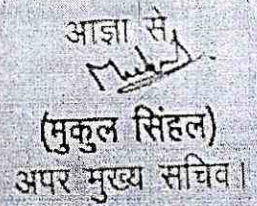 आज्ञा से,
(मुकुल सिंहल)
अपर मुख्य सचिव।